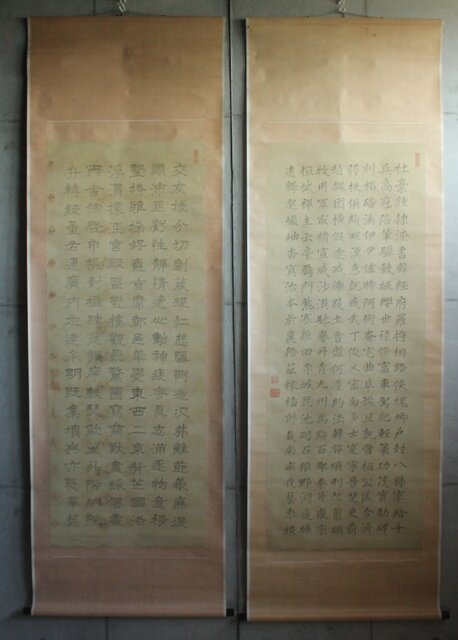 杜稾鍾隸漆書壁經府羅將相路俠槐卿戶封八縣家給千
兵高冠陪輦驅轂振纓世祿侈富車駕肥輕策功茂實勒碑
刻銘磻溪伊尹佐時阿衡奄宅曲阜微旦孰營桓公匡合濟
弱扶傾綺迴漢惠說感武丁俊乂密勿多士寔寧晉楚更霸
趙魏困橫假途滅虢踐土會盟何遵約法韓弊煩刑起翦頗
牧用軍最精宣威沙漠馳譽丹青九州禹跡百郡秦并嶽宗
恒岱禪主云亭雁門紫塞雞田赤城昆池碣石鉅野洞庭曠
遠緜邈巖岫杳冥治本於農務茲稼穡俶載南畝我藝黍稷
交友投分切磨箴規仁慈隱惻造次弗離節義廉退
顛沛匪虧性靜情逸心動神疲守真志滿逐物意移
堅持雅操好爵自縻都邑華夏東西二京背芒面洛
浮渭據涇宮殿盤鬱樓觀飛驚圖寫禽獸畫綵仙靈
丙舍傍啟甲帳對楹肆筵設席鼓瑟吹笙升階納陛
弁轉疑星右通廣內左達承明既集墳典亦聚群英